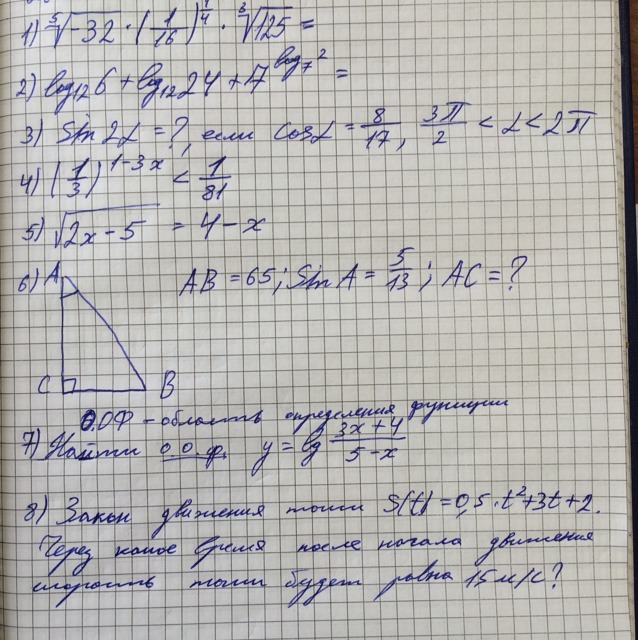 1) ⁵√-32 · (1/16)^(1/4) · ³√125 =
2) log₁₂6 + log₁₂24 + 7^(log₇2) =
3) Sin2α = ?, если Cosα = 8/17, 3π/2 < α < 2π
4) (1/3)^(1-3x) < 1/81
5) √(2x-5) = 4-x
6) A
AB = 65; Sin A = 5/13; AC = ?
C B
О.О.Ф - область определения функции
7) Найти о.о.ф. y = lg (3x+4)/(5-x)
8) Закон движения точки S(t) = 0,5·t²+3t+2.
Через какое время после начала движения
скорость точки будет равна 15 м/с?